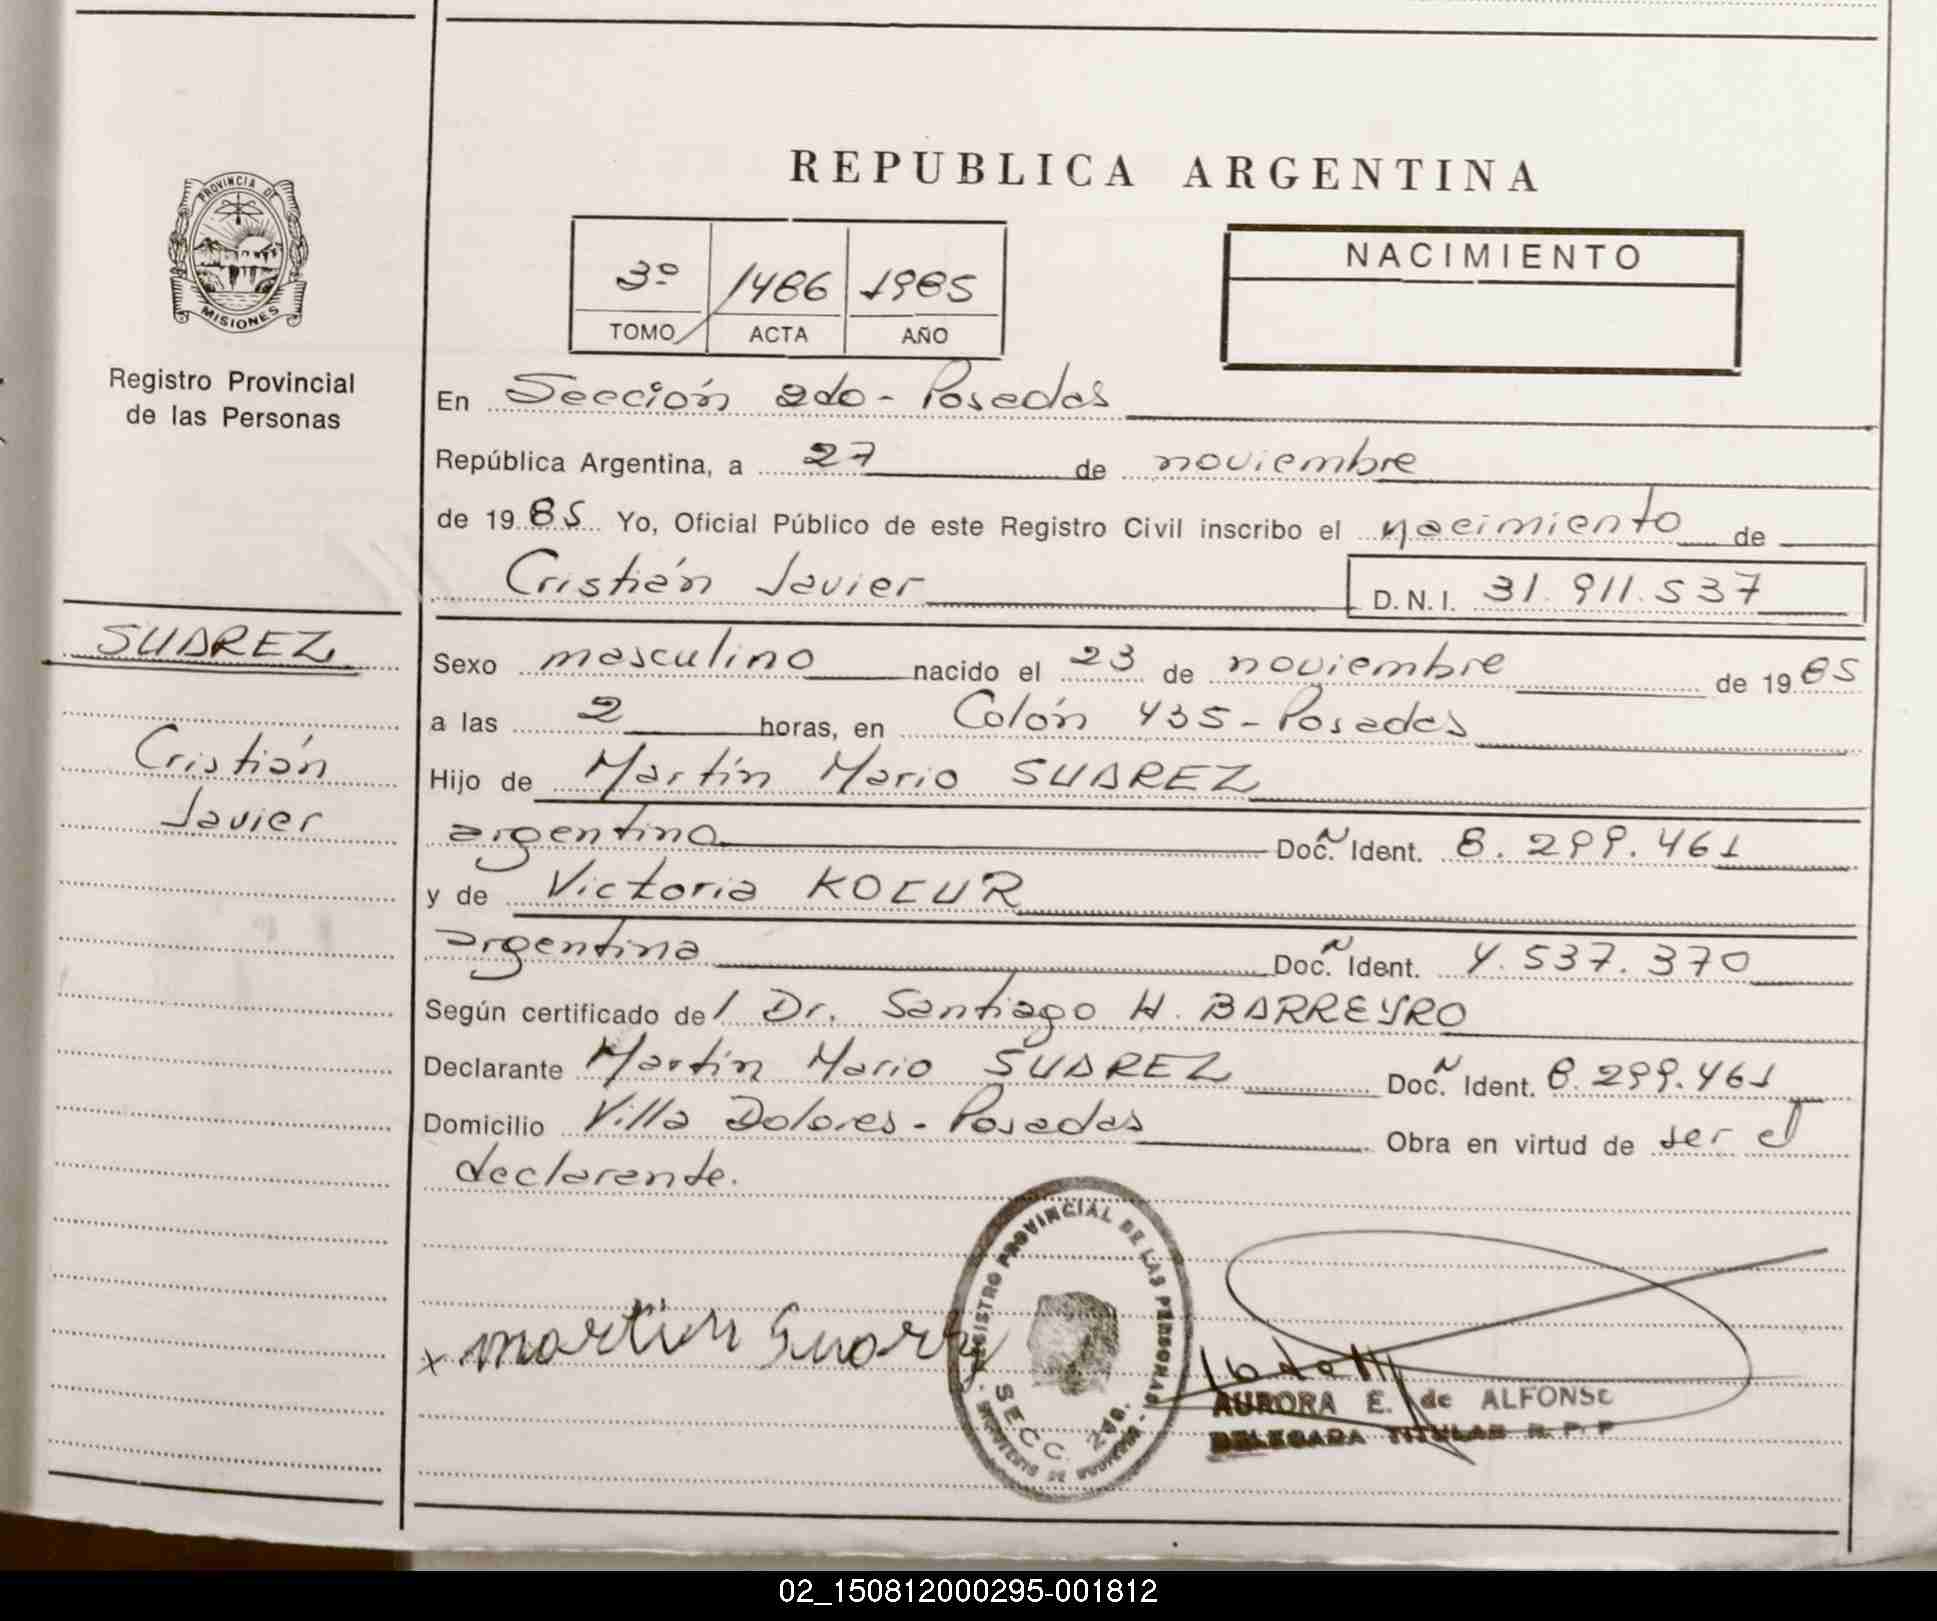 PROVINCIA DE
MISIONES
Registro Provincial
de las Personas
SUAREZ
Cristián
Javier
REPUBLICA ARGENTINA
3º 1486 1985
TOMO ACTA AÑO
NACIMIENTO
En Sección 2do - Posadas
República Argentina, a 27 de noviembre
de 1985 Yo, Oficial Público de este Registro Civil inscribo el nacimiento de
Cristián Javier D. N. I. 31.911.537
Sexo masculino nacido el 23 de noviembre de 1985
a las 2 horas, en Colón 435 - Posadas
Hijo de Martín Mario SUAREZ
argentino Doc. Ident. 8.299.461
y de Victoria KOCUR
argentina Doc. Ident. 4.537.370
Según certificado del Dr. Santiago H. BARREYRO
Declarante Martín Mario SUAREZ Doc. Ident. 8.299.461
Domicilio Villa Dolores - Posadas Obra en virtud de ser el
declarante.
REGISTRO PROVINCIAL DE LAS PERSONAS
SECC. 2da.
x martin Suarez
AURORA E. de ALFONSO
DELEGADA TITULAR R. P. P
02_150812000295-001812